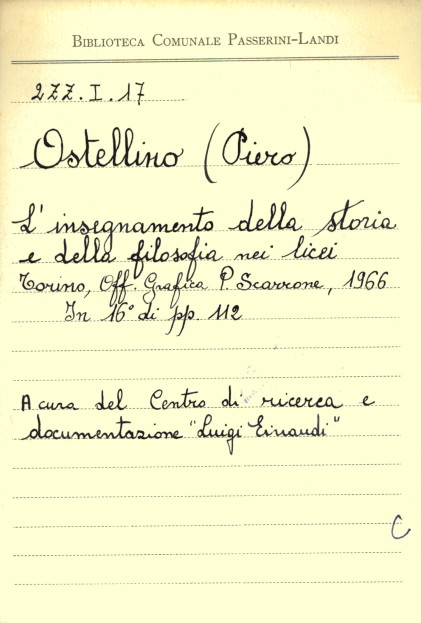 BIBLIOTECA COMUNALE PASSERINI-LANDI
2ZZ.I.17
Ostellino (Piero)
L'insegnamento della storia
e della filosofia nei licei
Torino, Off. Grafica P. Scarrone, 1966
In 16° di pp. 112
A cura del Centro di ricerca e
documentazione "Luigi Einaudi"
C